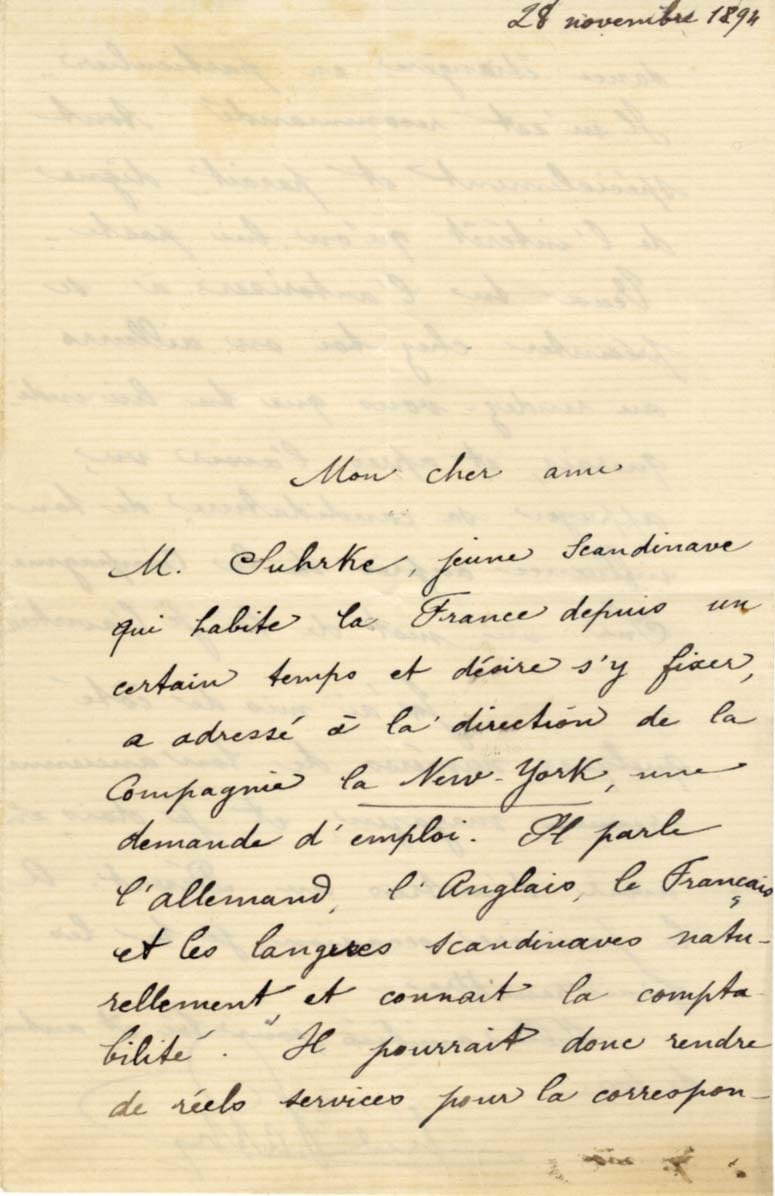 28 novembre 1894
Mon cher ami
M. Suhrke, jeune Scandinave
qui habite la France depuis un
certain temps et désire s'y fixer,
a adressé à la direction de la
Compagnie la New-York, une
demande d'emploi. Il parle
l'allemand, l'Anglais, le Français
et les langues scandinaves natu-
rellement, et connait la compta-
bilité. Il pourrait donc rendre
de réels services pour la correspon-